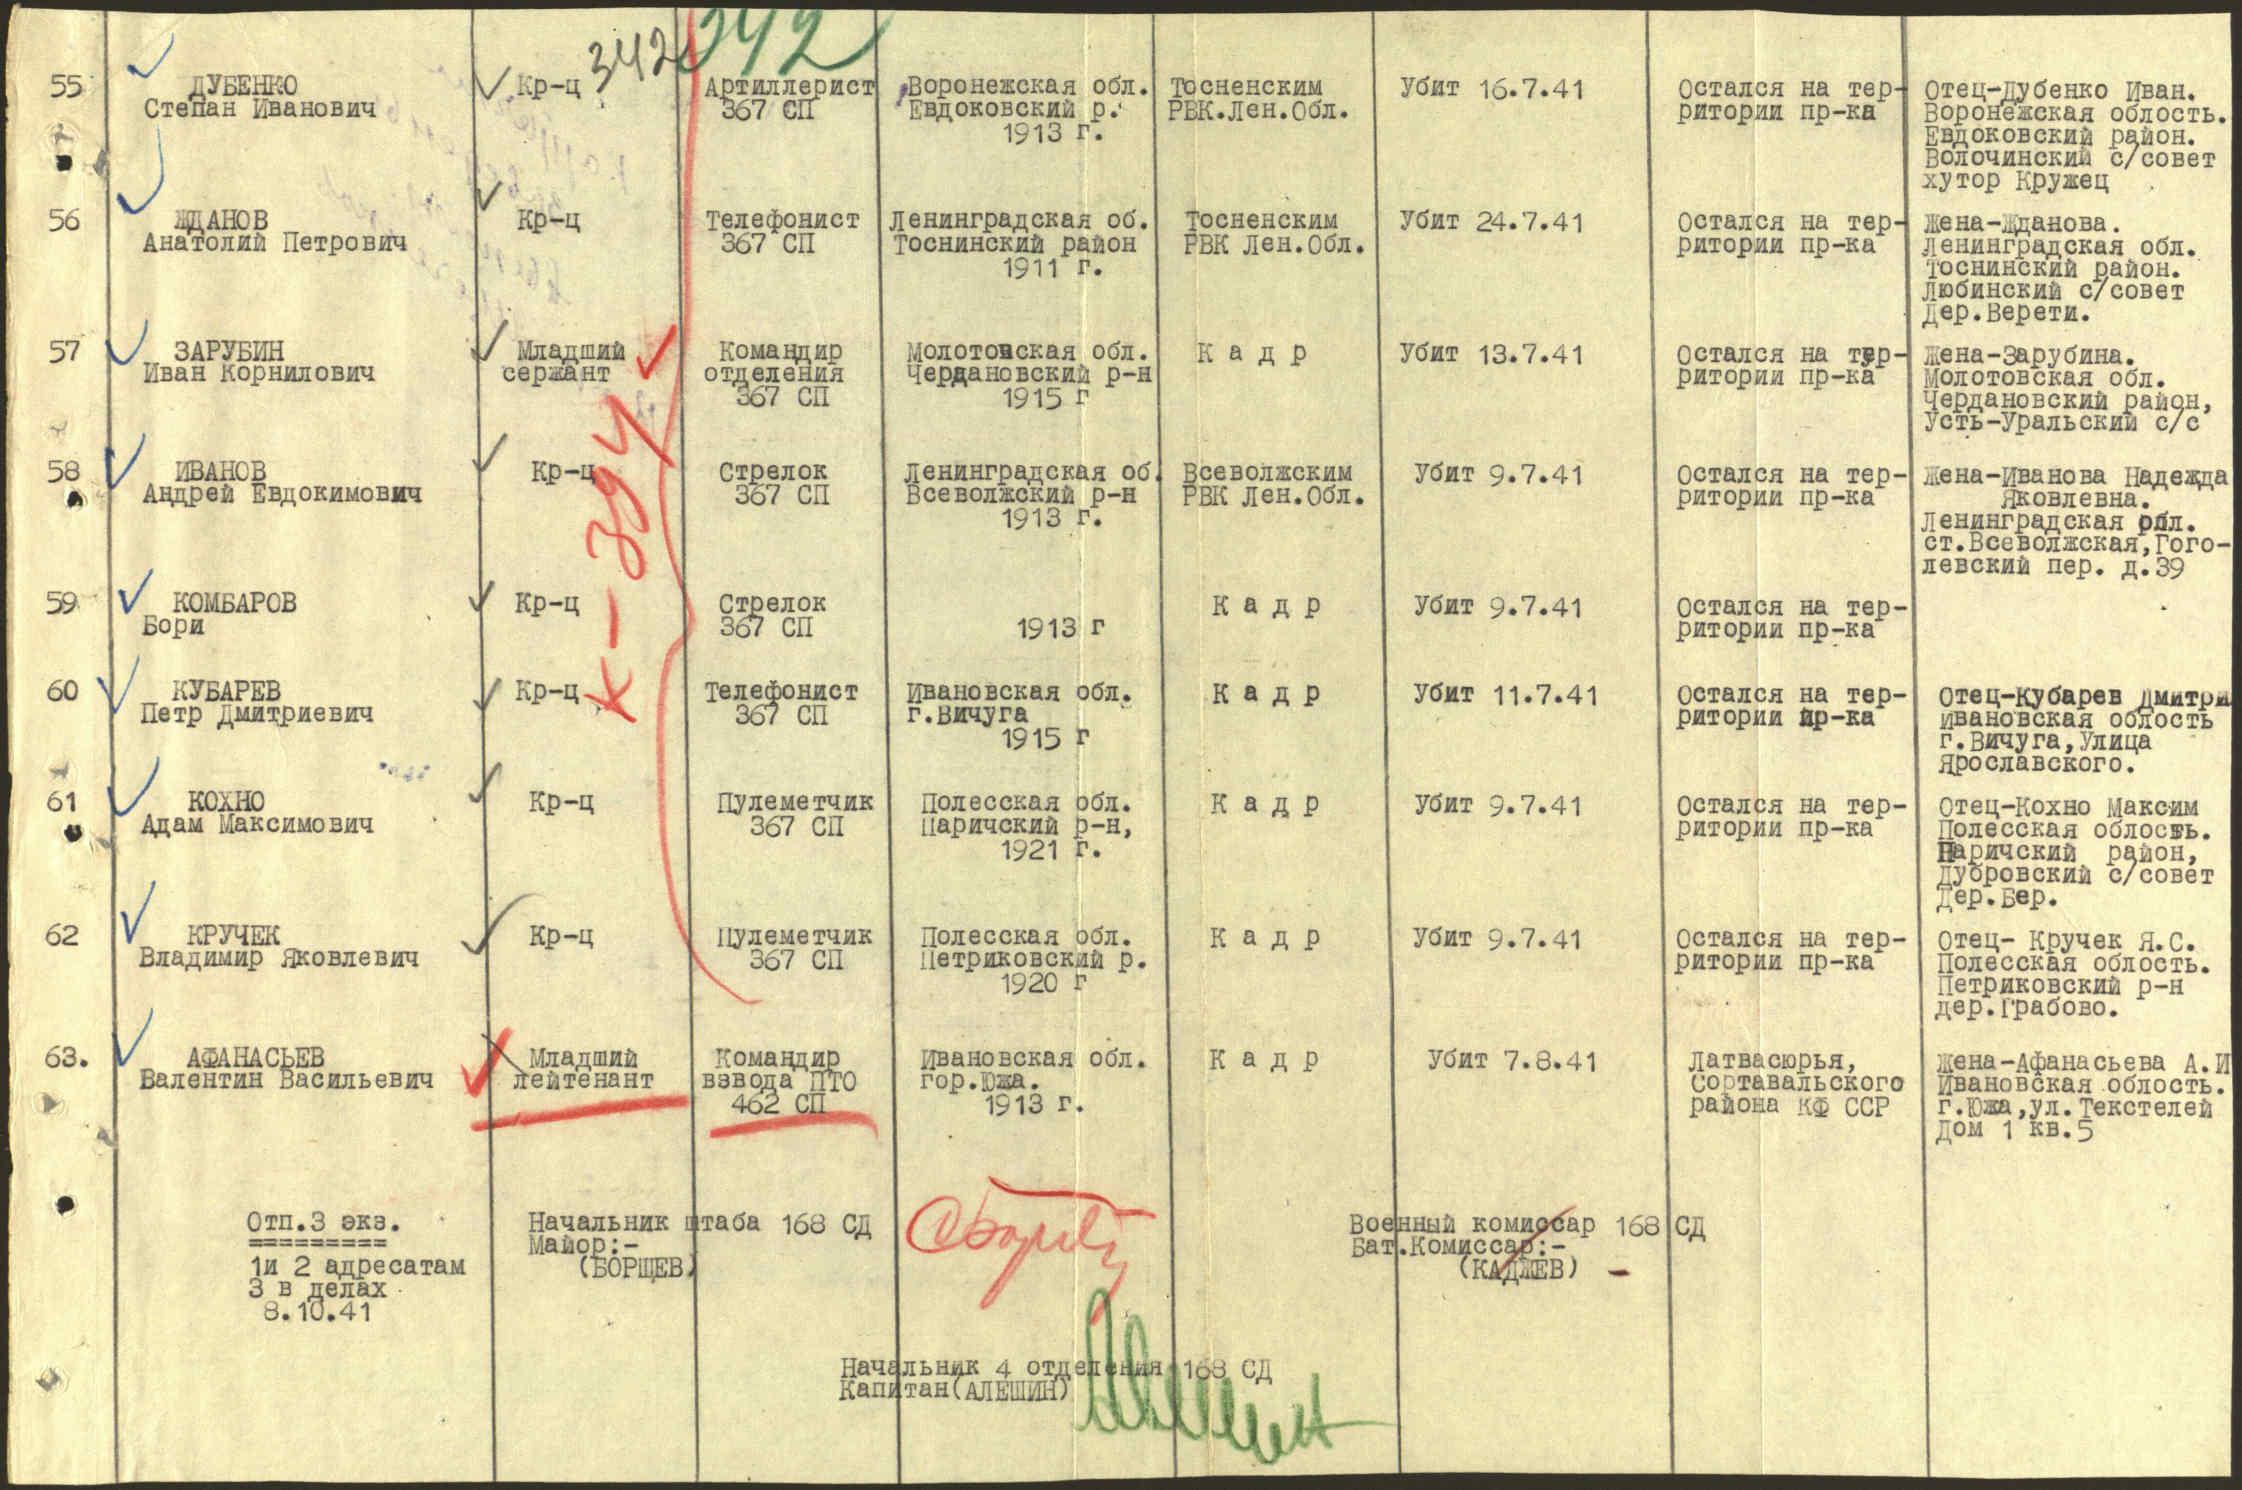 342 342
55 ДУБЕНКО Кр-ц Артиллерист Воронежская обл. Тосненским Убит 16.7.41 Остался на тер- Отец-Дубенко Иван.
Степан Иванович 367 СП Евдоковский р. РВК.Лен.Обл. ритории пр-ка Воронежская облость.
1913 г. Евдоковский район.
Волочинский с/совет
хутор Кружец
56 ЖДАНОВ Кр-ц Телефонист Ленинградская об. Тосненским Убит 24.7.41 Остался на тер- Жена-Жданова.
Анатолий Петрович 367 СП Тоснинский район РВК Лен.Обл. ритории пр-ка Ленинградская обл.
1911 г. Тоснинский район.
Любинский с/совет
Дер.Верети.
57 ЗАРУБИН Младший Командир Молотовская обл. К а д р Убит 13.7.41 Остался на тер- Жена-Зарубина.
Иван Корнилович сержант отделения Чердановский р-н ритории пр-ка Молотовская обл.
367 СП 1915 г Чердановский район,
Усть-Уральский с/с
58 ИВАНОВ Кр-ц Стрелок Ленинградская об. Всеволжским Убит 9.7.41 Остался на тер- Жена-Иванова Надежда
Андрей Евдокимович 367 СП Всеволжский р-н РВК Лен.Обл. ритории пр-ка Яковлевна.
1913 г. Ленинградская обл.
ст.Всеволжская,Гого-
левский пер. д.39
59 КОМБАРОВ Кр-ц Стрелок К а д р Убит 9.7.41 Остался на тер-
Бори 367 СП 1913 г ритории пр-ка
60 КУБАРЕВ Кр-ц Телефонист Ивановская обл. К а д р Убит 11.7.41 Остался на тер- Отец-Кубарев Дмитри
Петр Дмитриевич 367 СП г.Вичуга ритории пр-ка Ивановская облость
1915 г г.Вичуга,Улица
Ярославского.
61 КОХНО Кр-ц Пулеметчик Полесская обл. К а д р Убит 9.7.41 Остался на тер- Отец-Кохно Максим
Адам Максимович 367 СП Паричский р-н, ритории пр-ка Полесская облость.
1921 г. Паричский район,
Дубровский с/совет
Дер.Бер.
62 КРУЧЕК Кр-ц Пулеметчик Полесская обл. К а д р Убит 9.7.41 Остался на тер- Отец- Кручек Я.С.
Владимир Яковлевич 367 СП Петриковский р. ритории пр-ка Полесская облость.
1920 г Петриковский р-н
дер.Грабово.
63. АФАНАСЬЕВ Младший Командир Ивановская обл. К а д р Убит 7.8.41 Латвасюрья, Жена-Афанасьева А.И
Валентин Васильевич лейтенант взвода ПТО гор.Южа. Сортавальского Ивановская облость.
462 СП 1913 г. района КФ ССР г.Южа,ул.Текстелей
Дом 1 кв.5
Отп.3 экз. Начальник штаба 168 СД Военный комиссар 168 СД
========= Майор:- Бат.Комиссар:-
1и 2 адресатам (БОРЩЕВ) (КАДЖЕВ)
3 в делах
8.10.41
Начальник 4 отделения 168 СД
Капитан(АЛЕШИН)